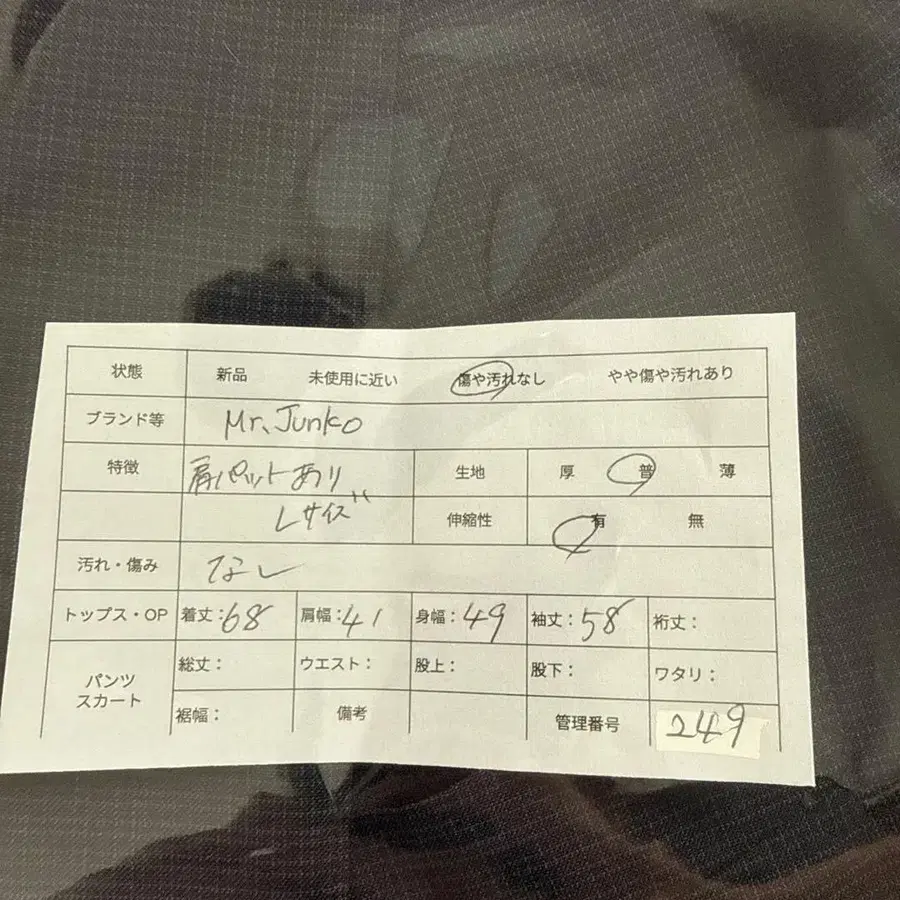 状態 新品 未使用に近い 傷や汚れなし やや傷や汚れあり
ブランド等 Mr.Junko
特徴 肩パットあり 生地 厚 普 薄
Lサイズ 伸縮性 有 無
汚れ・傷み なし
トップス・OP 着丈：68 肩幅：41 身幅：49 袖丈：58 裄丈：
パンツ スカート 総丈： ウエスト： 股上： 股下： ワタリ：
裾幅： 備考 管理番号 249